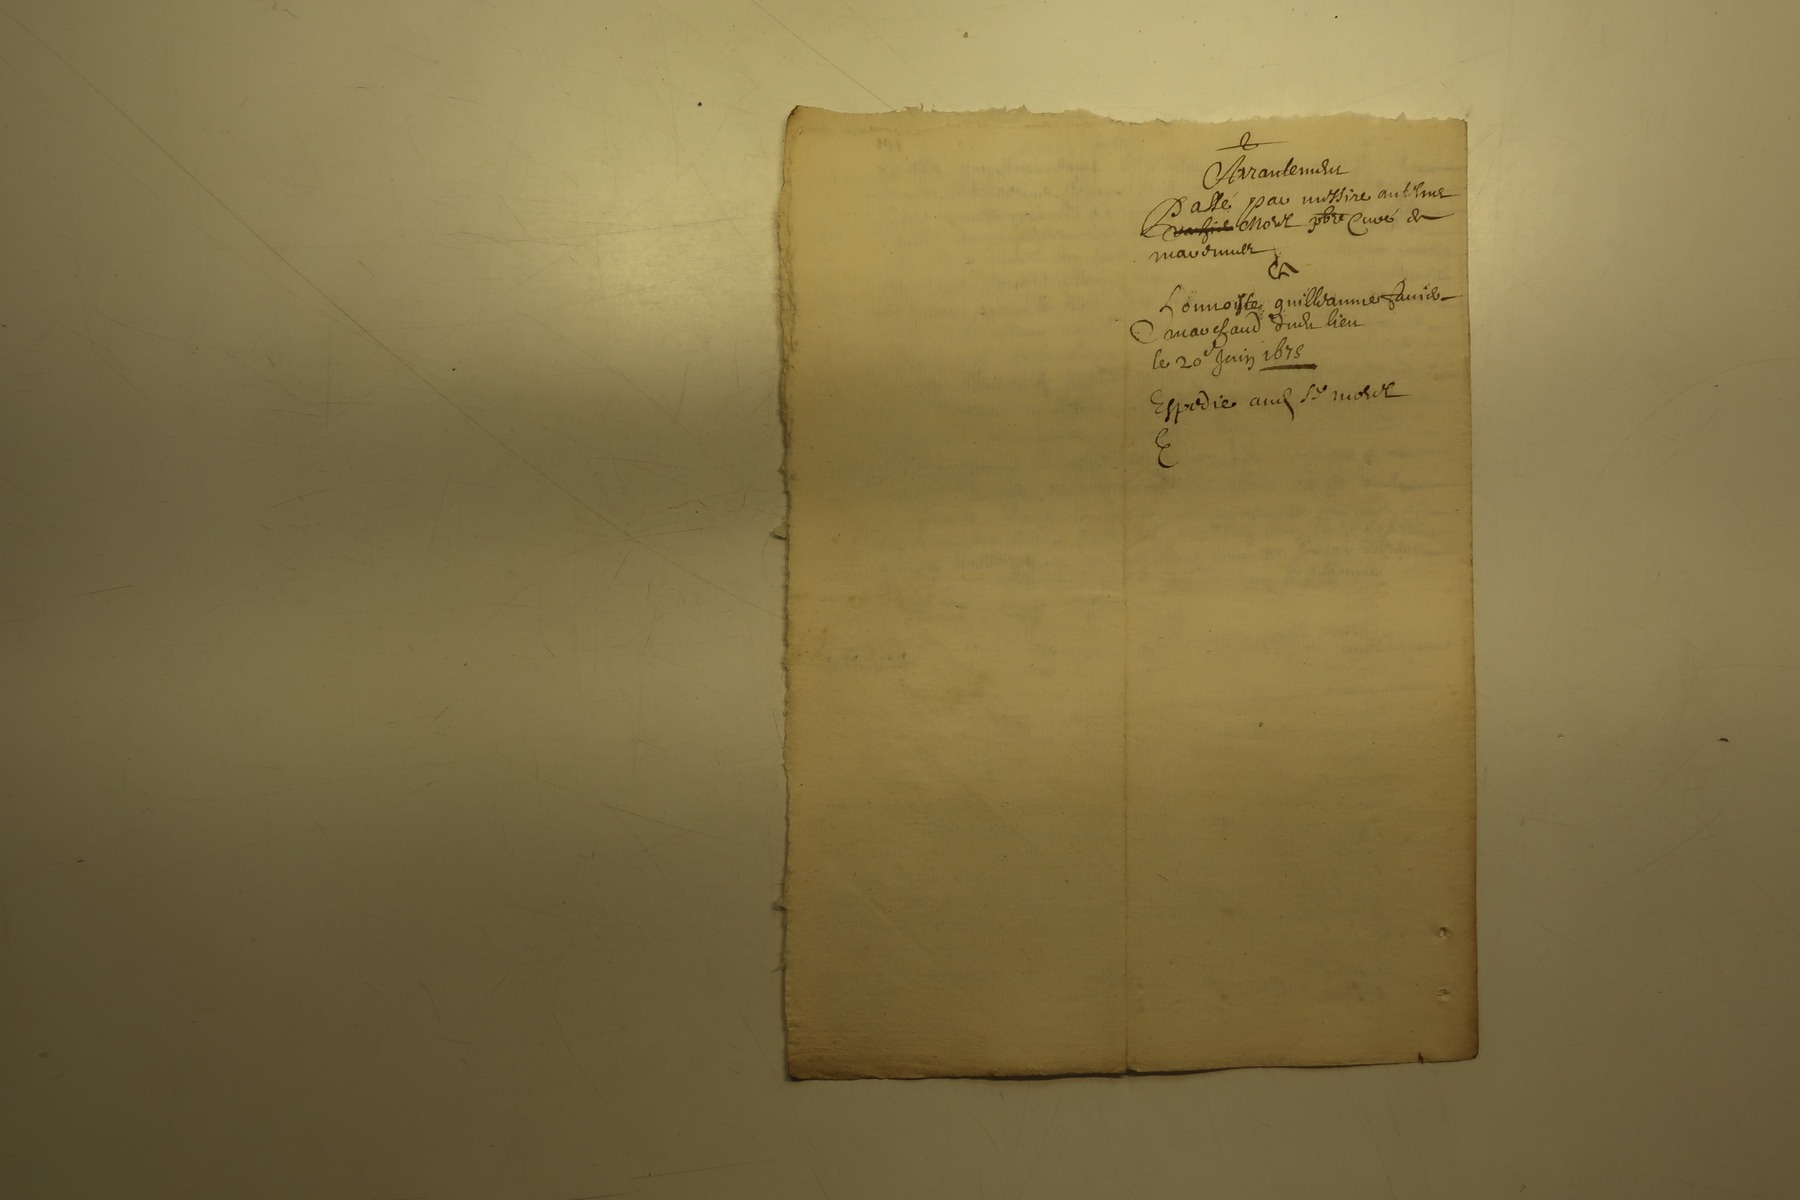 2
Arrantement
Passé par messire anthme
Morel pbre Curé de
Et
honneste guilliaume Janier
marchand dudt lieu
le 20e Juin 1675
Expedie aud Sr morel
E